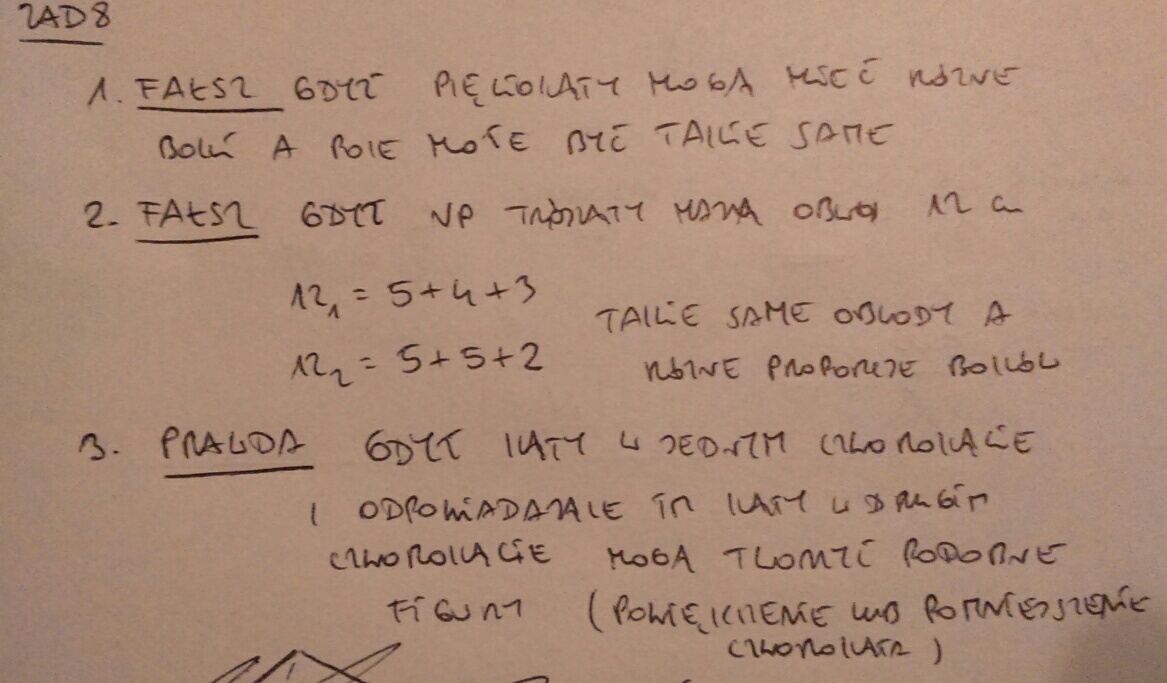 ZAD 8
1. FAŁSZ GDYŻ PIĘCIOKĄTY MOGĄ MIEĆ RÓŻNE
BOKI A POLE MOŻE BYĆ TAKIE SAME
2. FAŁSZ GDYŻ NP TRÓJKĄTY MAJĄ OBWÓD 12 cm
12₁ = 5+4+3
12₂ = 5+5+2
TAKIE SAME OBWODY A
RÓŻNE PROPORCJE BOKÓW
3. PRAWDA GDYŻ KĄTY W JEDNYM CZWOROKĄCIE
I ODPOWIADAJĄCE IM KĄTY W DRUGIM
CZWOROKĄCIE MOGĄ TWORZYĆ PODOBNE
FIGURY (POWIĘKSZENIE LUB POMNIEJSZENIE
CZWOROKĄTA)